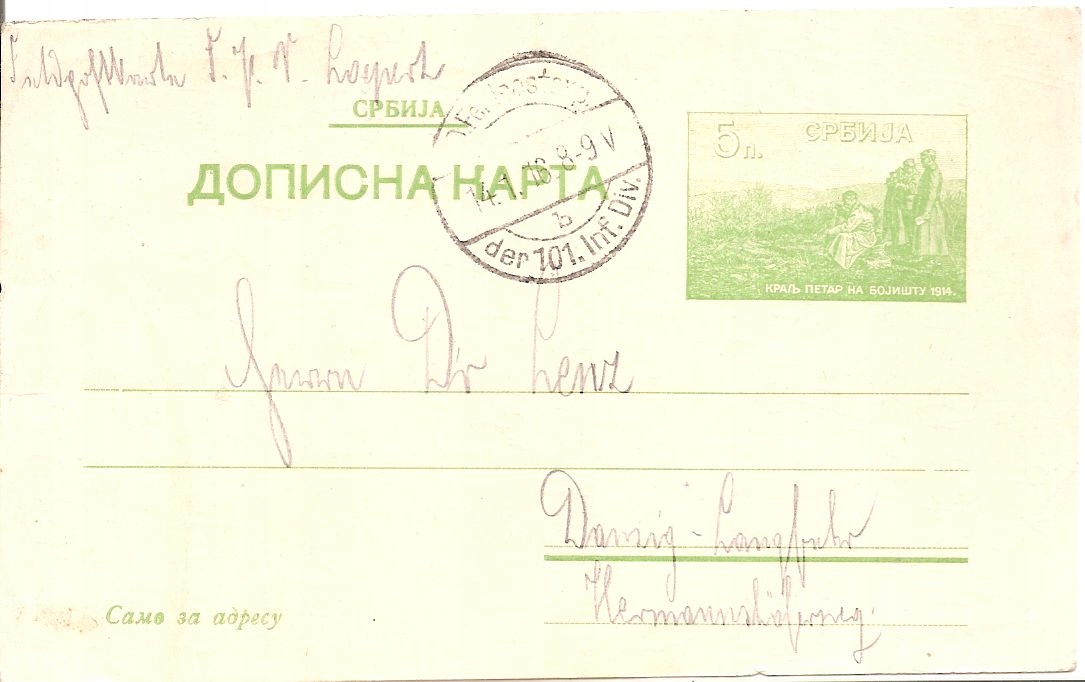 Feldpostkarte F. P. V.
СРБИЈА
ДОПИСНА КАРТА
14. 1. 16. 8-9 V
b
der 101. Inf. Div.
5 п. СРБИЈА
КРАЉ ПЕТАР НА БОЈИШТУ 1914.
Herrn Dr Lenz
Danzig-Langfuhr
Само за адресу